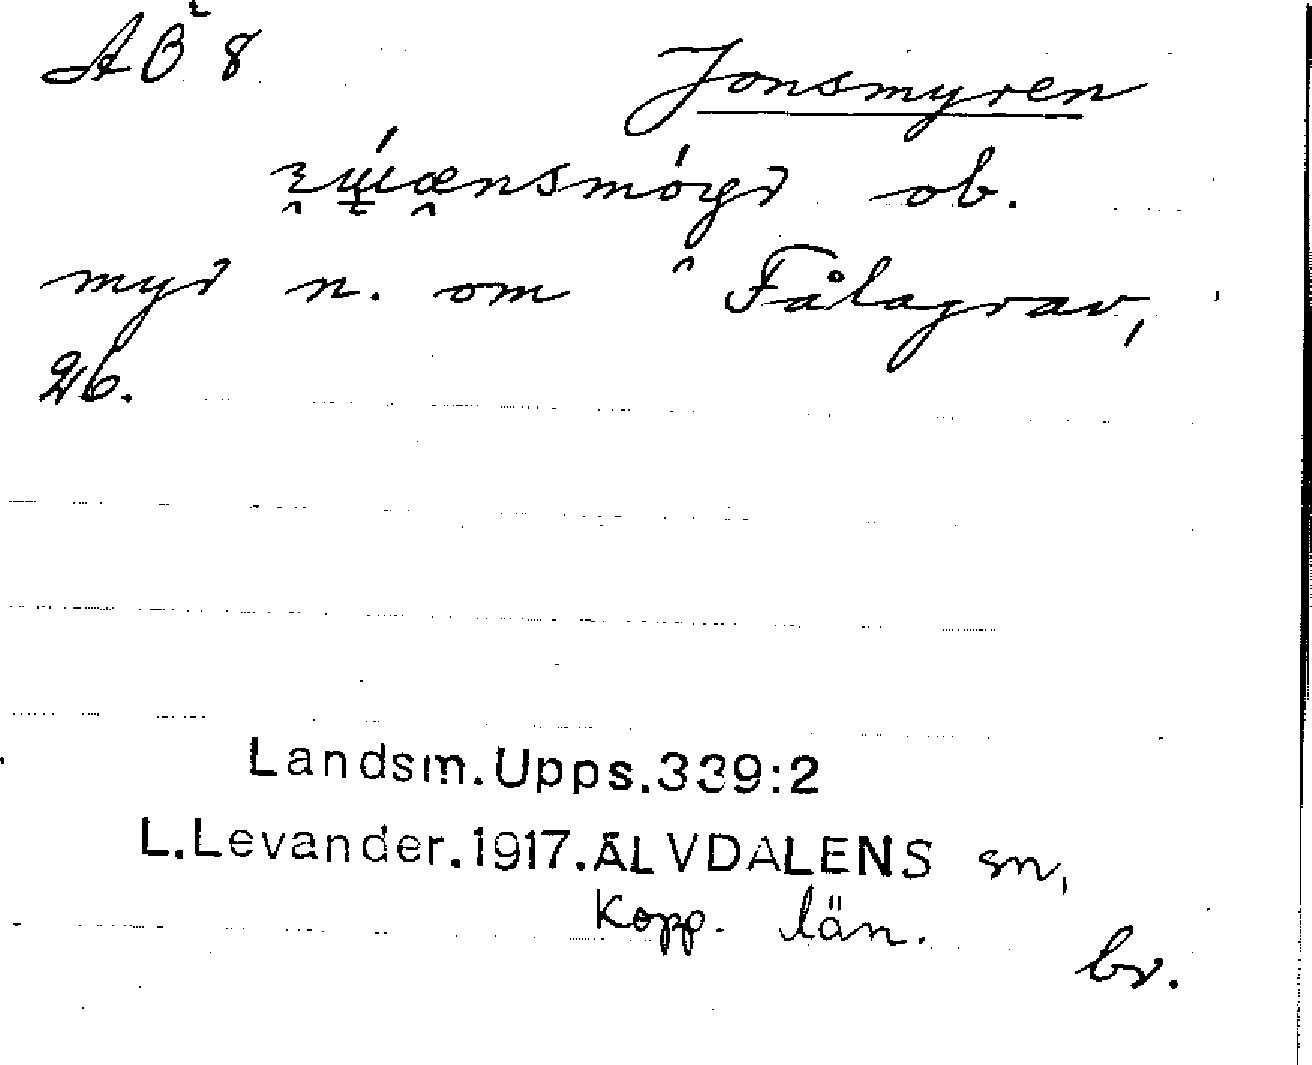 AB 8
Jonsmyren
ob.
myr n. om Fålagrav,
26.
Landsm.Upps.339:2
L.Levander.1917.ÄLVDALENS sn,
Kopp. län.
br.